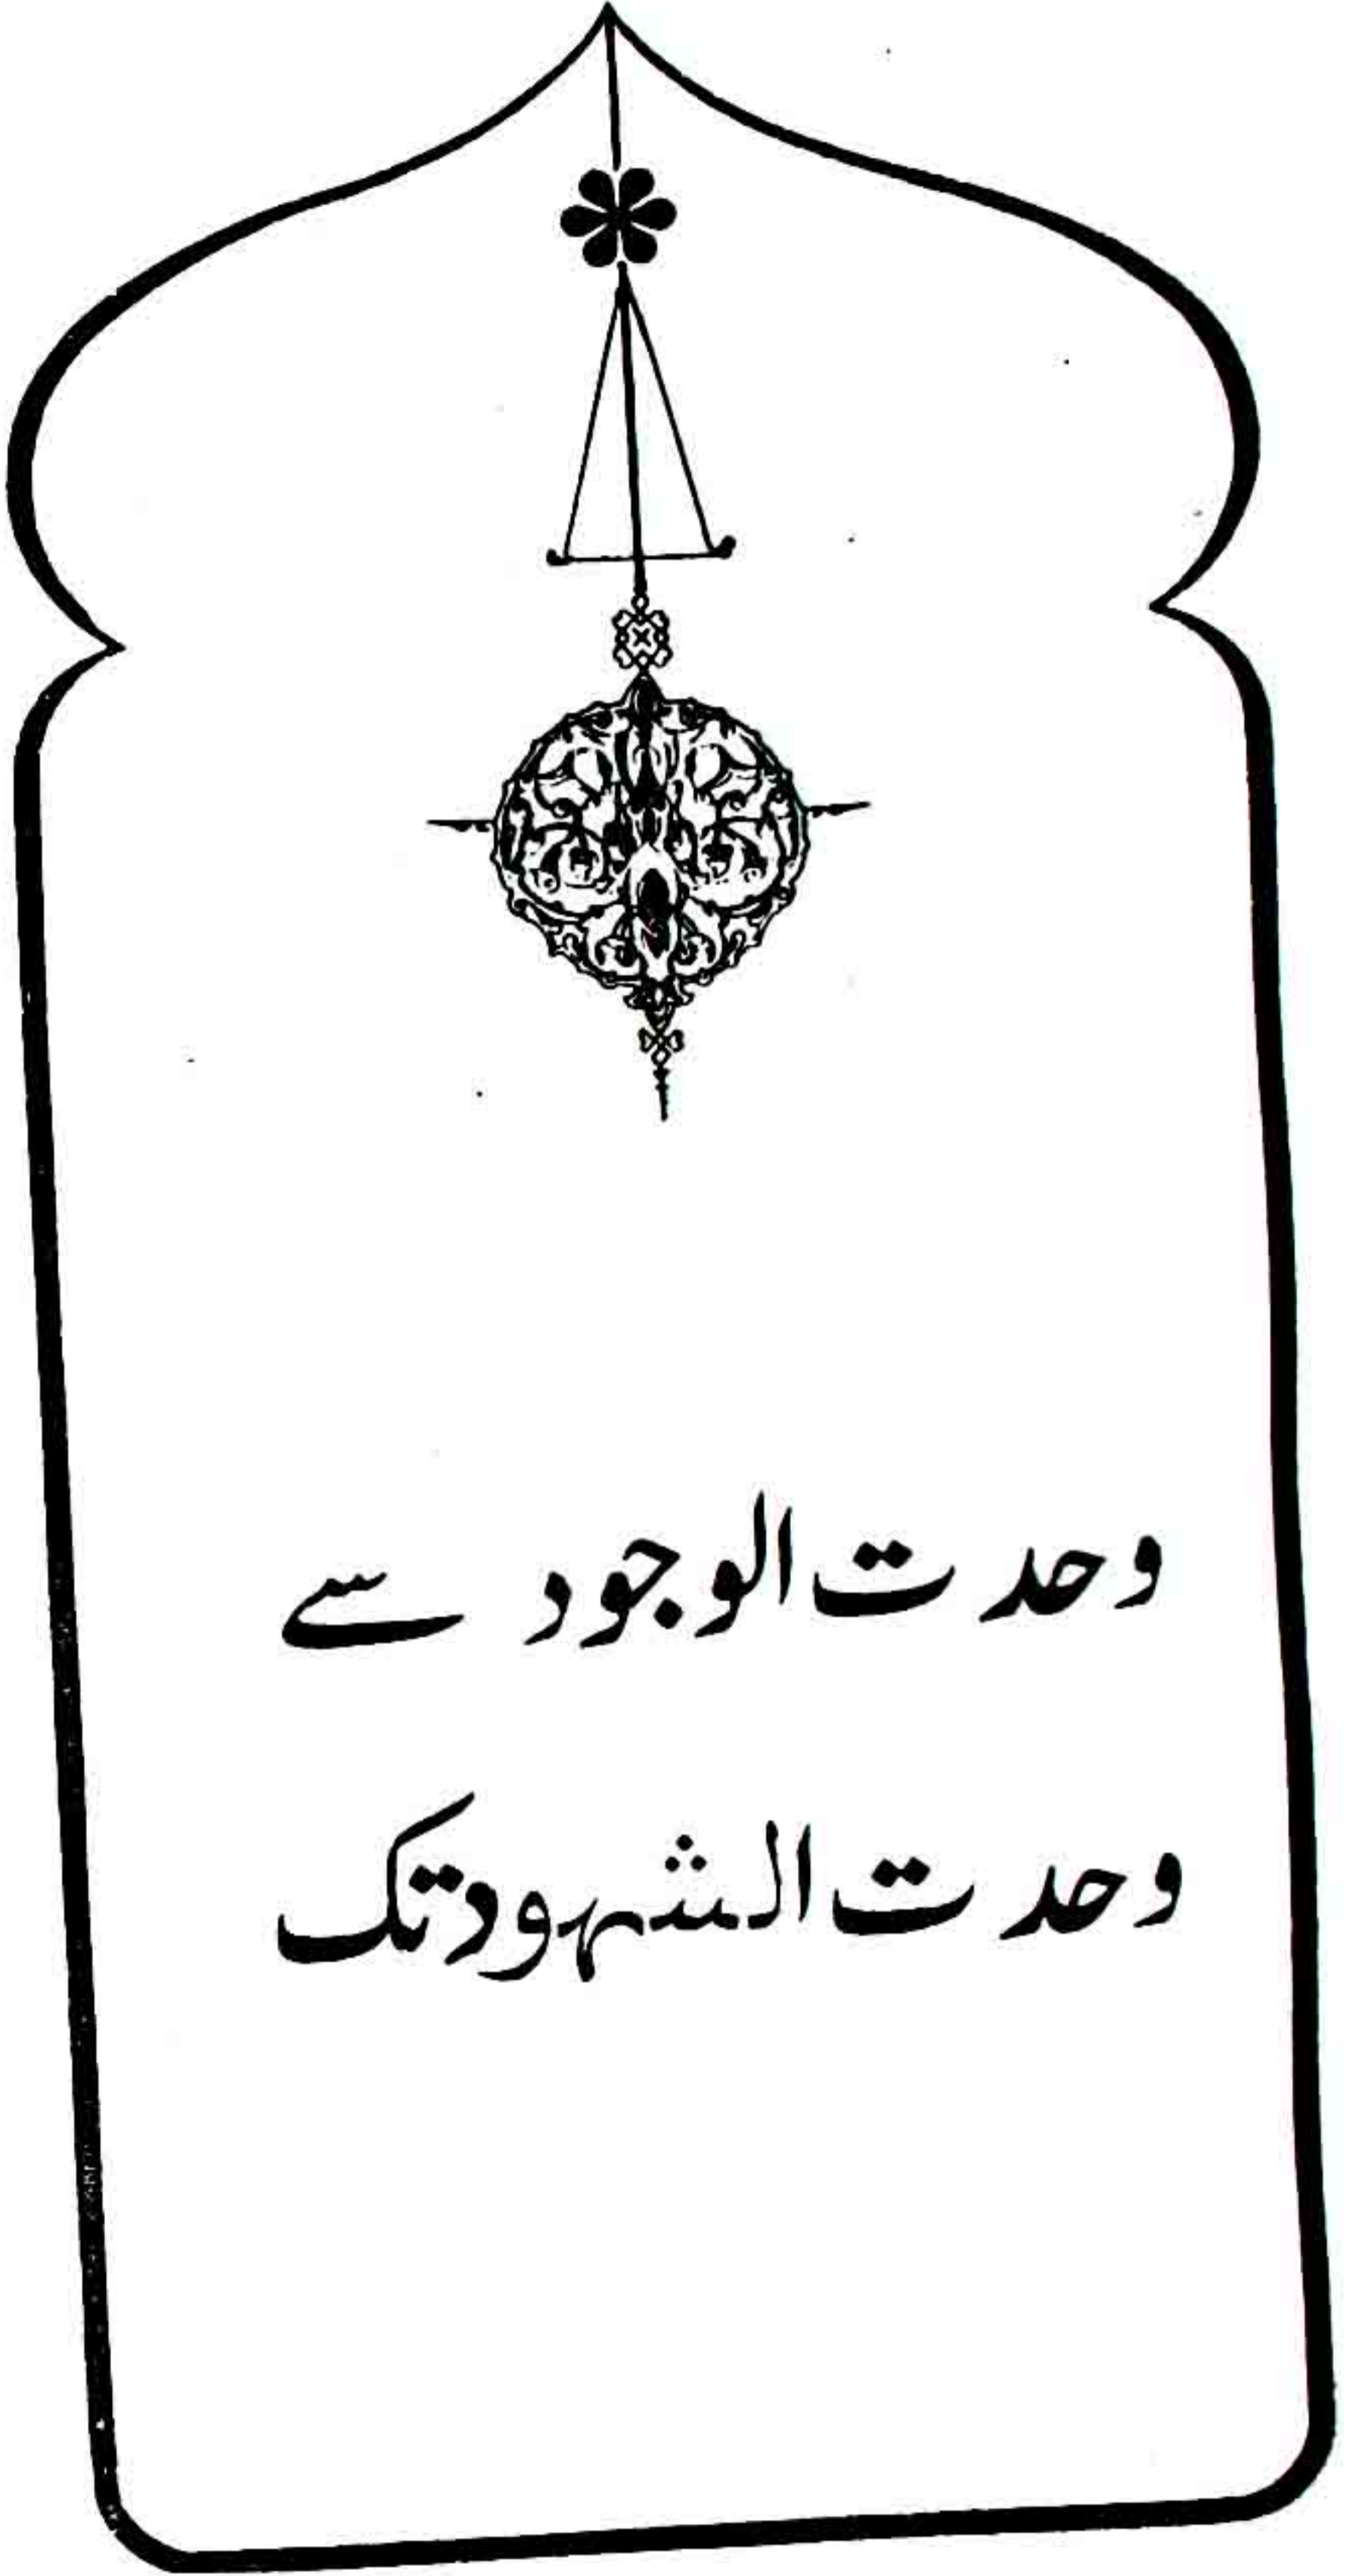 وحدت الوجود سے
وحدت الشہود تک